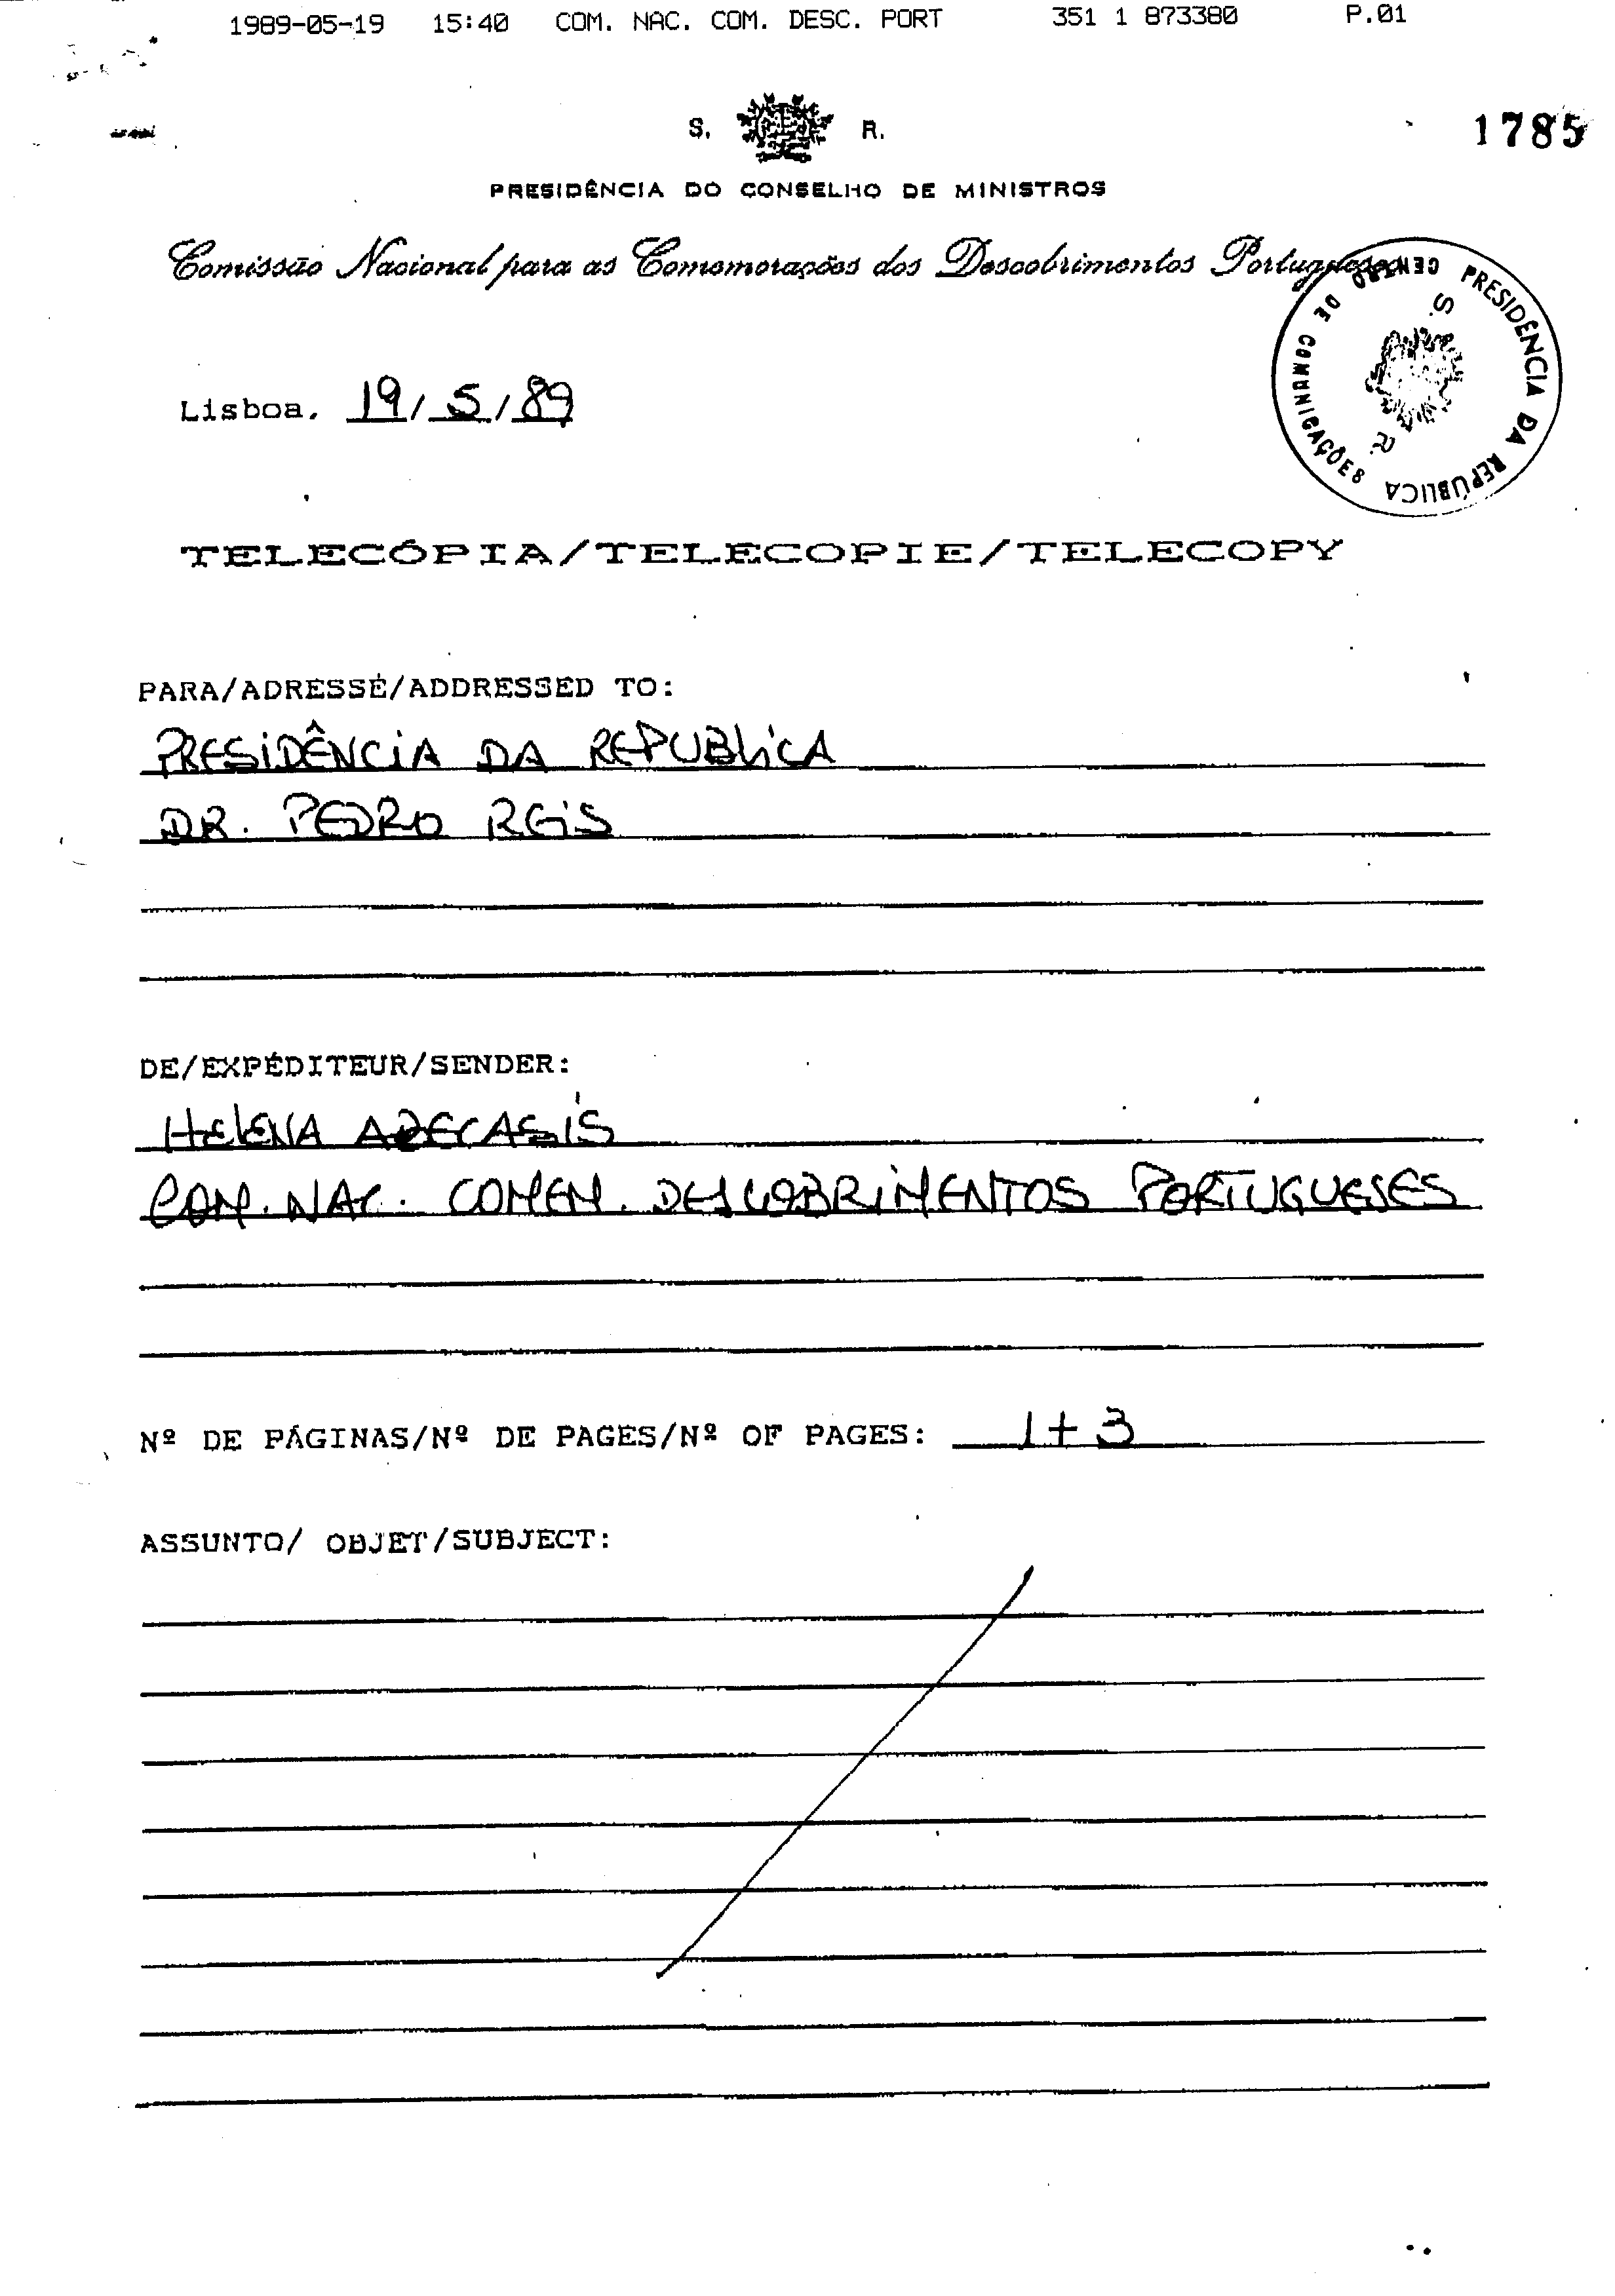 1989-05-19 15:40 COM. NAC. COM. DESC. PORT 351 1 873380 P.01
S. R.
1785
PRESIDÊNCIA DO CONSELHO DE MINISTROS
Comissão Nacional para as Comemorações dos Descobrimentos Portugueses
PRESIDÊNCIA DA REPÚBLICA
CENTRO DE COMUNICAÇÕES
S. R.
Lisboa, 19/5/89
TELECÓPIA/TELECOPIE/TELECOPY
PARA/ADRESSÉ/ADDRESSED TO:
PRESIDÊNCIA DA REPUBLICA
DR. PEDRO REIS
DE/EXPÉDITEUR/SENDER:
HELENA ABECASIS
COM. NAC. COMEM. DESCOBRIMENTOS PORTUGUESES
Nº DE PÁGINAS/Nº DE PAGES/Nº OF PAGES: 1+3
ASSUNTO/ OBJET/SUBJECT: